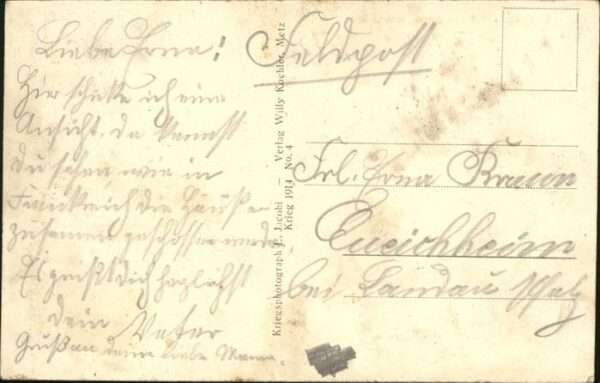 Liebe Erna!
Hier schicke ich eine
Ansicht, da kannst
du sehen wie in
Frankreich die Häuser
zusamen geschossen werden
Es grüßt dich herzlichst
dein Vater
Gruß an deine liebe Mama.
Kriegsphotograph E. Jacobi — Verlag Willy Koehler, Metz
Krieg 1914 No. 4
Feldpost
Frl. Erna Braun
bei Landau Pfalz